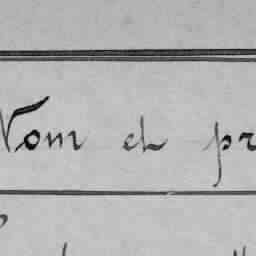 Nom et pr